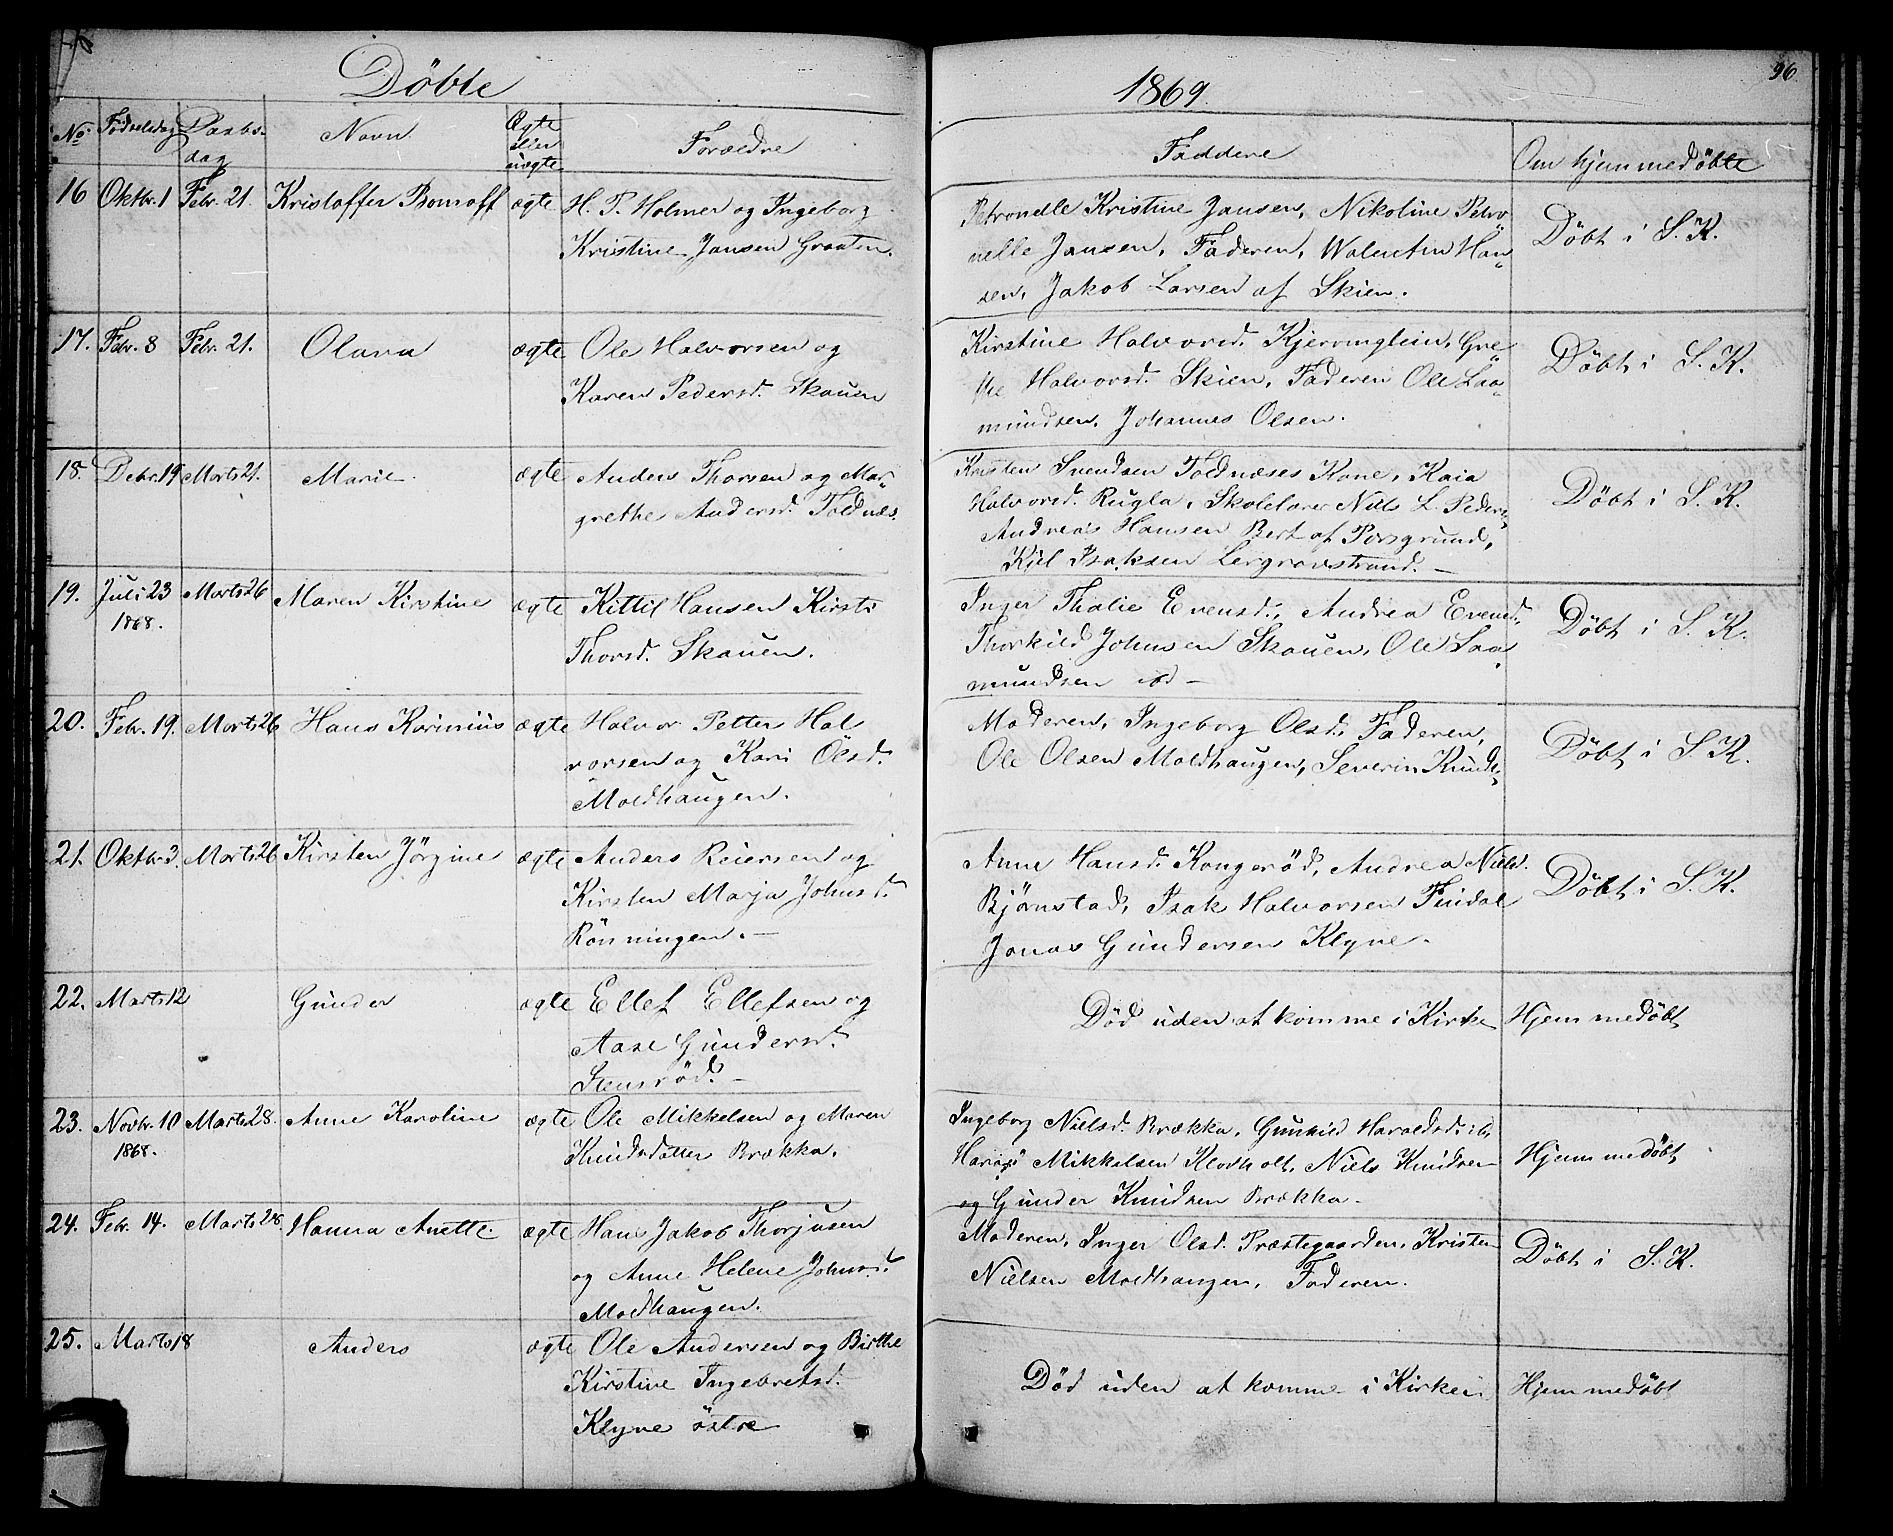 Döbte
1869.
96
No. Fødselsdag Daabsdag Navn Ægte eller uægte Forældre Faddere Om hjemmedøbte
16 Oktbr. 1 Febr. 21. Kristoffer ægte H. P. Holmer og Ingeborg
Kristine Jansen Graaten.
Petronelle Kristine Jansen, Nikoline Petro
nelle Jansen, Faderen, Walentin Han
sen, Jakob Larsen af Skien.
Döbt i S. K.
17. Febr. 8 Febr. 21. Olava ægte Ole Halvorsen og
Karen Pedersd. Skauen
Kirstine Halvorsd. Gre
the Halvorsd. Skien, Faderen Ole Laa
mundsen, Johannes Olsen.
Döbt i S. K.
18. Debr. 19 Marts 21. Marie ægte Anders Thorsen og Mar
grethe Andersd. Foldnæs.
Kristen Svendsen Foldnæses Kone, Kaia
Halvorsd. Rugla, Skolelærer Niels L. Peders
Andreas Hansen Bert af Porsgrund,
Kjel Isaksen Lergravstrand. —
Döbt i S. K.
19. Juli 23 Marts 26 Maren Kirstine ægte Kittil Hansen Kirsti
1868.
Thorsd. Skauen.
Inger Thalie Evensd., Andrea Evensd.,
Thorkild Johnsen Skauen, Ole Laa
mundsen ibd —
Döbt i S. K.
20. Febr. 19. Marts 26 Hans Karinius ægte Halvor Petter Hal
vorsen og Kari Olsd.
Moldhaugen.
Moderen, Ingeborg Olsd. Faderen,
Ole Olsen Moldhaugen, Severin Knuds
Döbt i S. K.
21. Oktbr. 3. Marts 26 Kirsten Jörgine ægte Anders Reiersen og
Kirsten Marja Johnsd.
Rönningen. —
Anne Hansd. Kongeröd, Andrea Nielsd.
Bjørnstad, Isak Halvorsen Findal
Jonas Gundersen Klyve.
Döbt i S. K.
22. Marts 12 Gunder ægte Ellef Ellefsen og
Aase Gundersd.
Stensröd. —
Död uden at komme i Kirke
Hjemmedöbt
23. Novbr. 10 Marts 28. Anne Karoline ægte Ole Mikkelsen og Maren
1868.
Knudsdatter Brækka.
Ingeborg Nielsd. Brækka, Gunhild Haraldsd. ib,
Mikkelsen Klovholt, Niels Knudsen
og Gunder Knudsen Brækka.
Hjemmedöbt
24. Febr. 14. Marts 28. Hanna Anette ægte Hans Jakob Thorjusen
og Anne Helene Johnsd.
Moldhaugen.
Moderen, Inger Olsd. Præstegaarden, Kristen
Nielsen Moldhaugen, Faderen.
Döbt i S. K.
25. Marts 18 Anders ægte Ole Andersen og Birthe
Kirstine Ingebretsd.
Klyve östre
Död uden at komme i Kirken
Hjemmedöbt